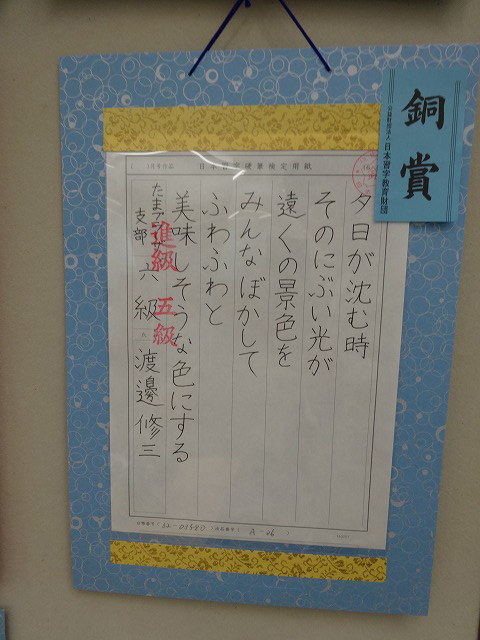 銅賞
公益財団法人日本習字教育財団
日本習字硬筆検定用紙
夕日が沈む時
そのにぶい光が
遠くの景色を
みんなぼかして
ふわふわと
美味しそうな色にする
進級 五級
たまプラーザ
支部 六級 渡邊修三
A-26